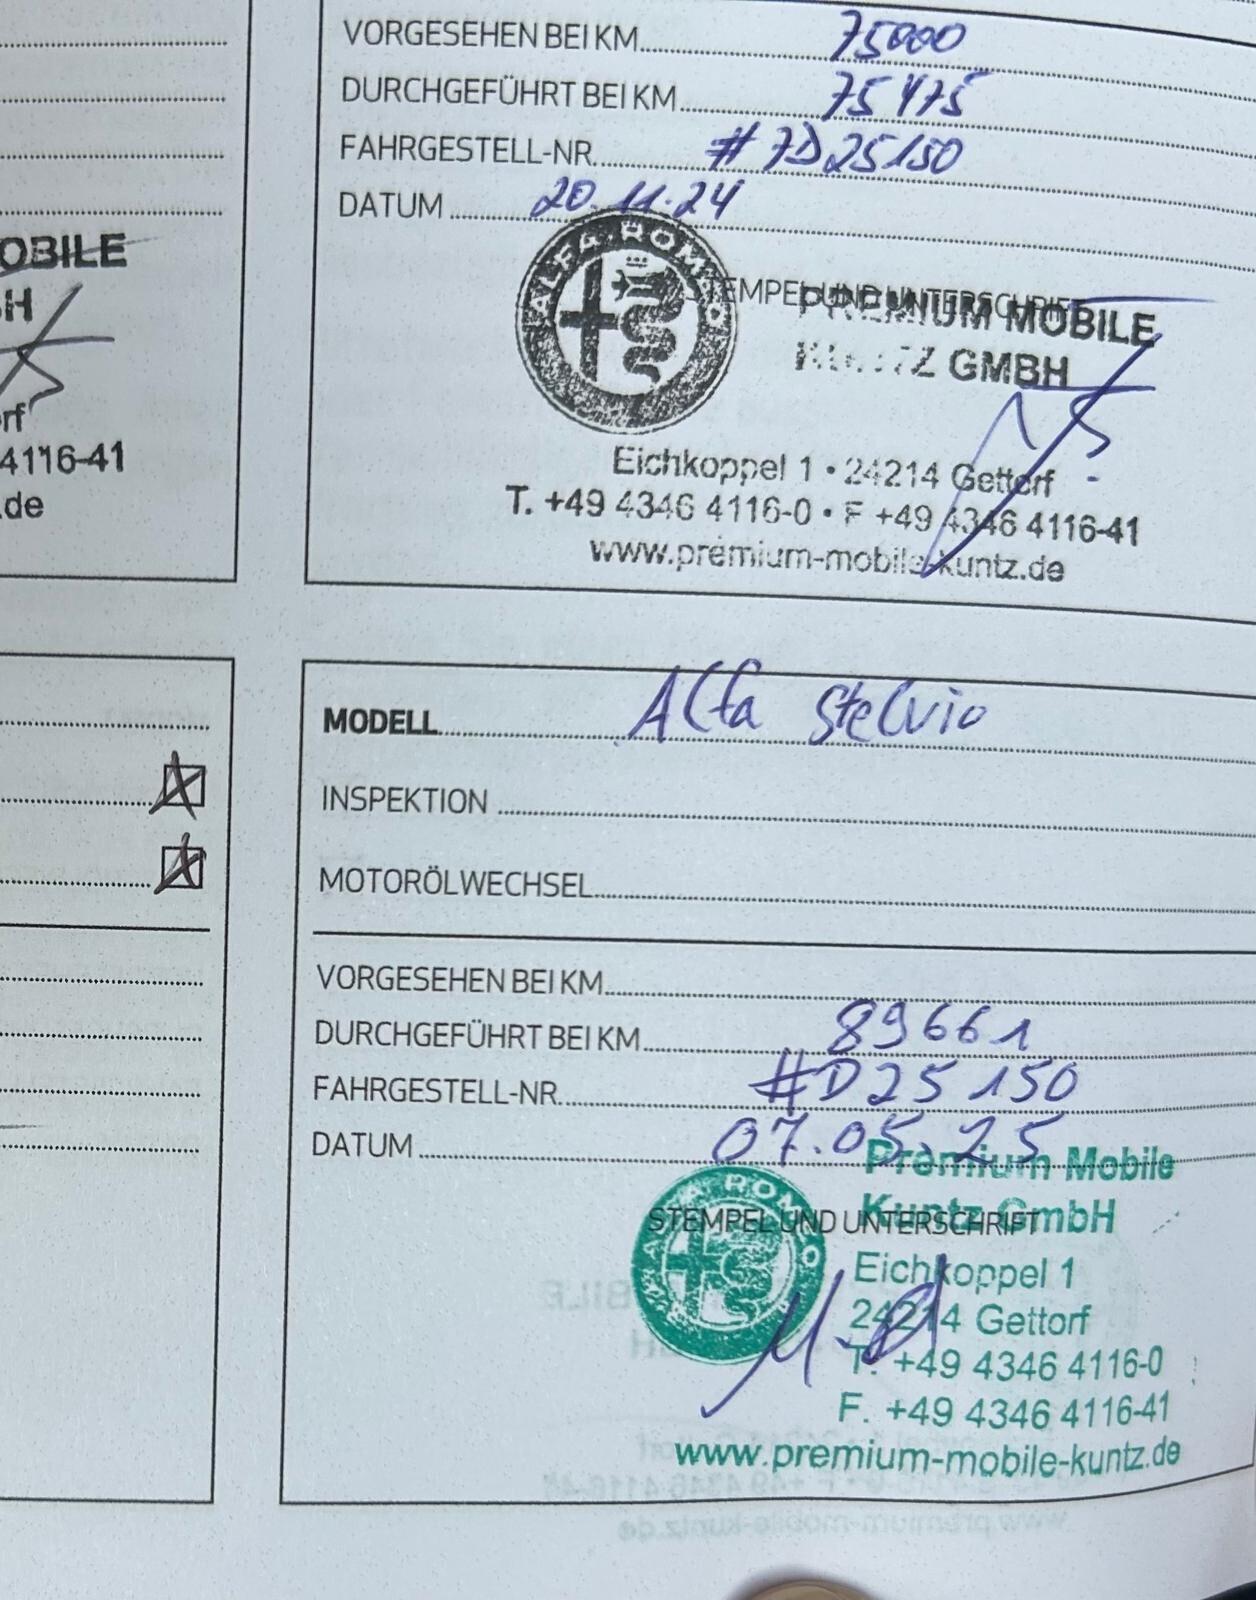 VORGESEHEN BEI KM 75000
DURCHGEFÜHRT BEI KM 75475
FAHRGESTELL-NR. # 7D25150
DATUM 20.11.24
ALFA ROMEO
STEMPEL UND UNTERSCHRIFT
PREMIUM MOBILE
KUNTZ GMBH
Eichkoppel 1 • 24214 Gettorf
T. +49 4346 4116-0 • F +49 4346 4116-41
www.premium-mobile-kuntz.de
OBILE
H
rf
4116-41
.de
MODELL Alfa Stelvio
INSPEKTION
MOTORÖLWECHSEL
VORGESEHEN BEI KM
DURCHGEFÜHRT BEI KM 89661
FAHRGESTELL-NR. #D25150
DATUM 07.05.25
ALFA ROMEO
STEMPEL UND UNTERSCHRIFT
Premium Mobile
Kuntz GmbH
Eichkoppel 1
24214 Gettorf
T. +49 4346 4116-0
F. +49 4346 4116-41
www.premium-mobile-kuntz.de